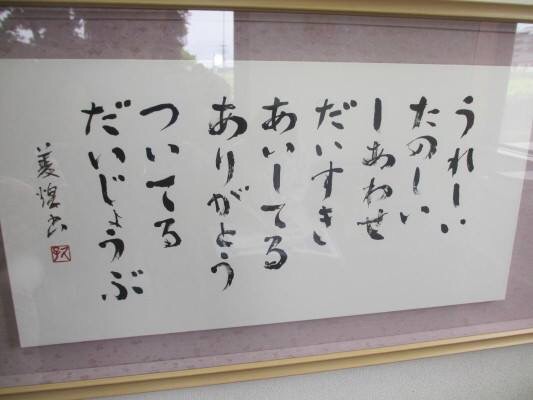 うれしい
たのしい
しあわせ
だいすき
あいしてる
ありがとう
ついてる
だいじょうぶ